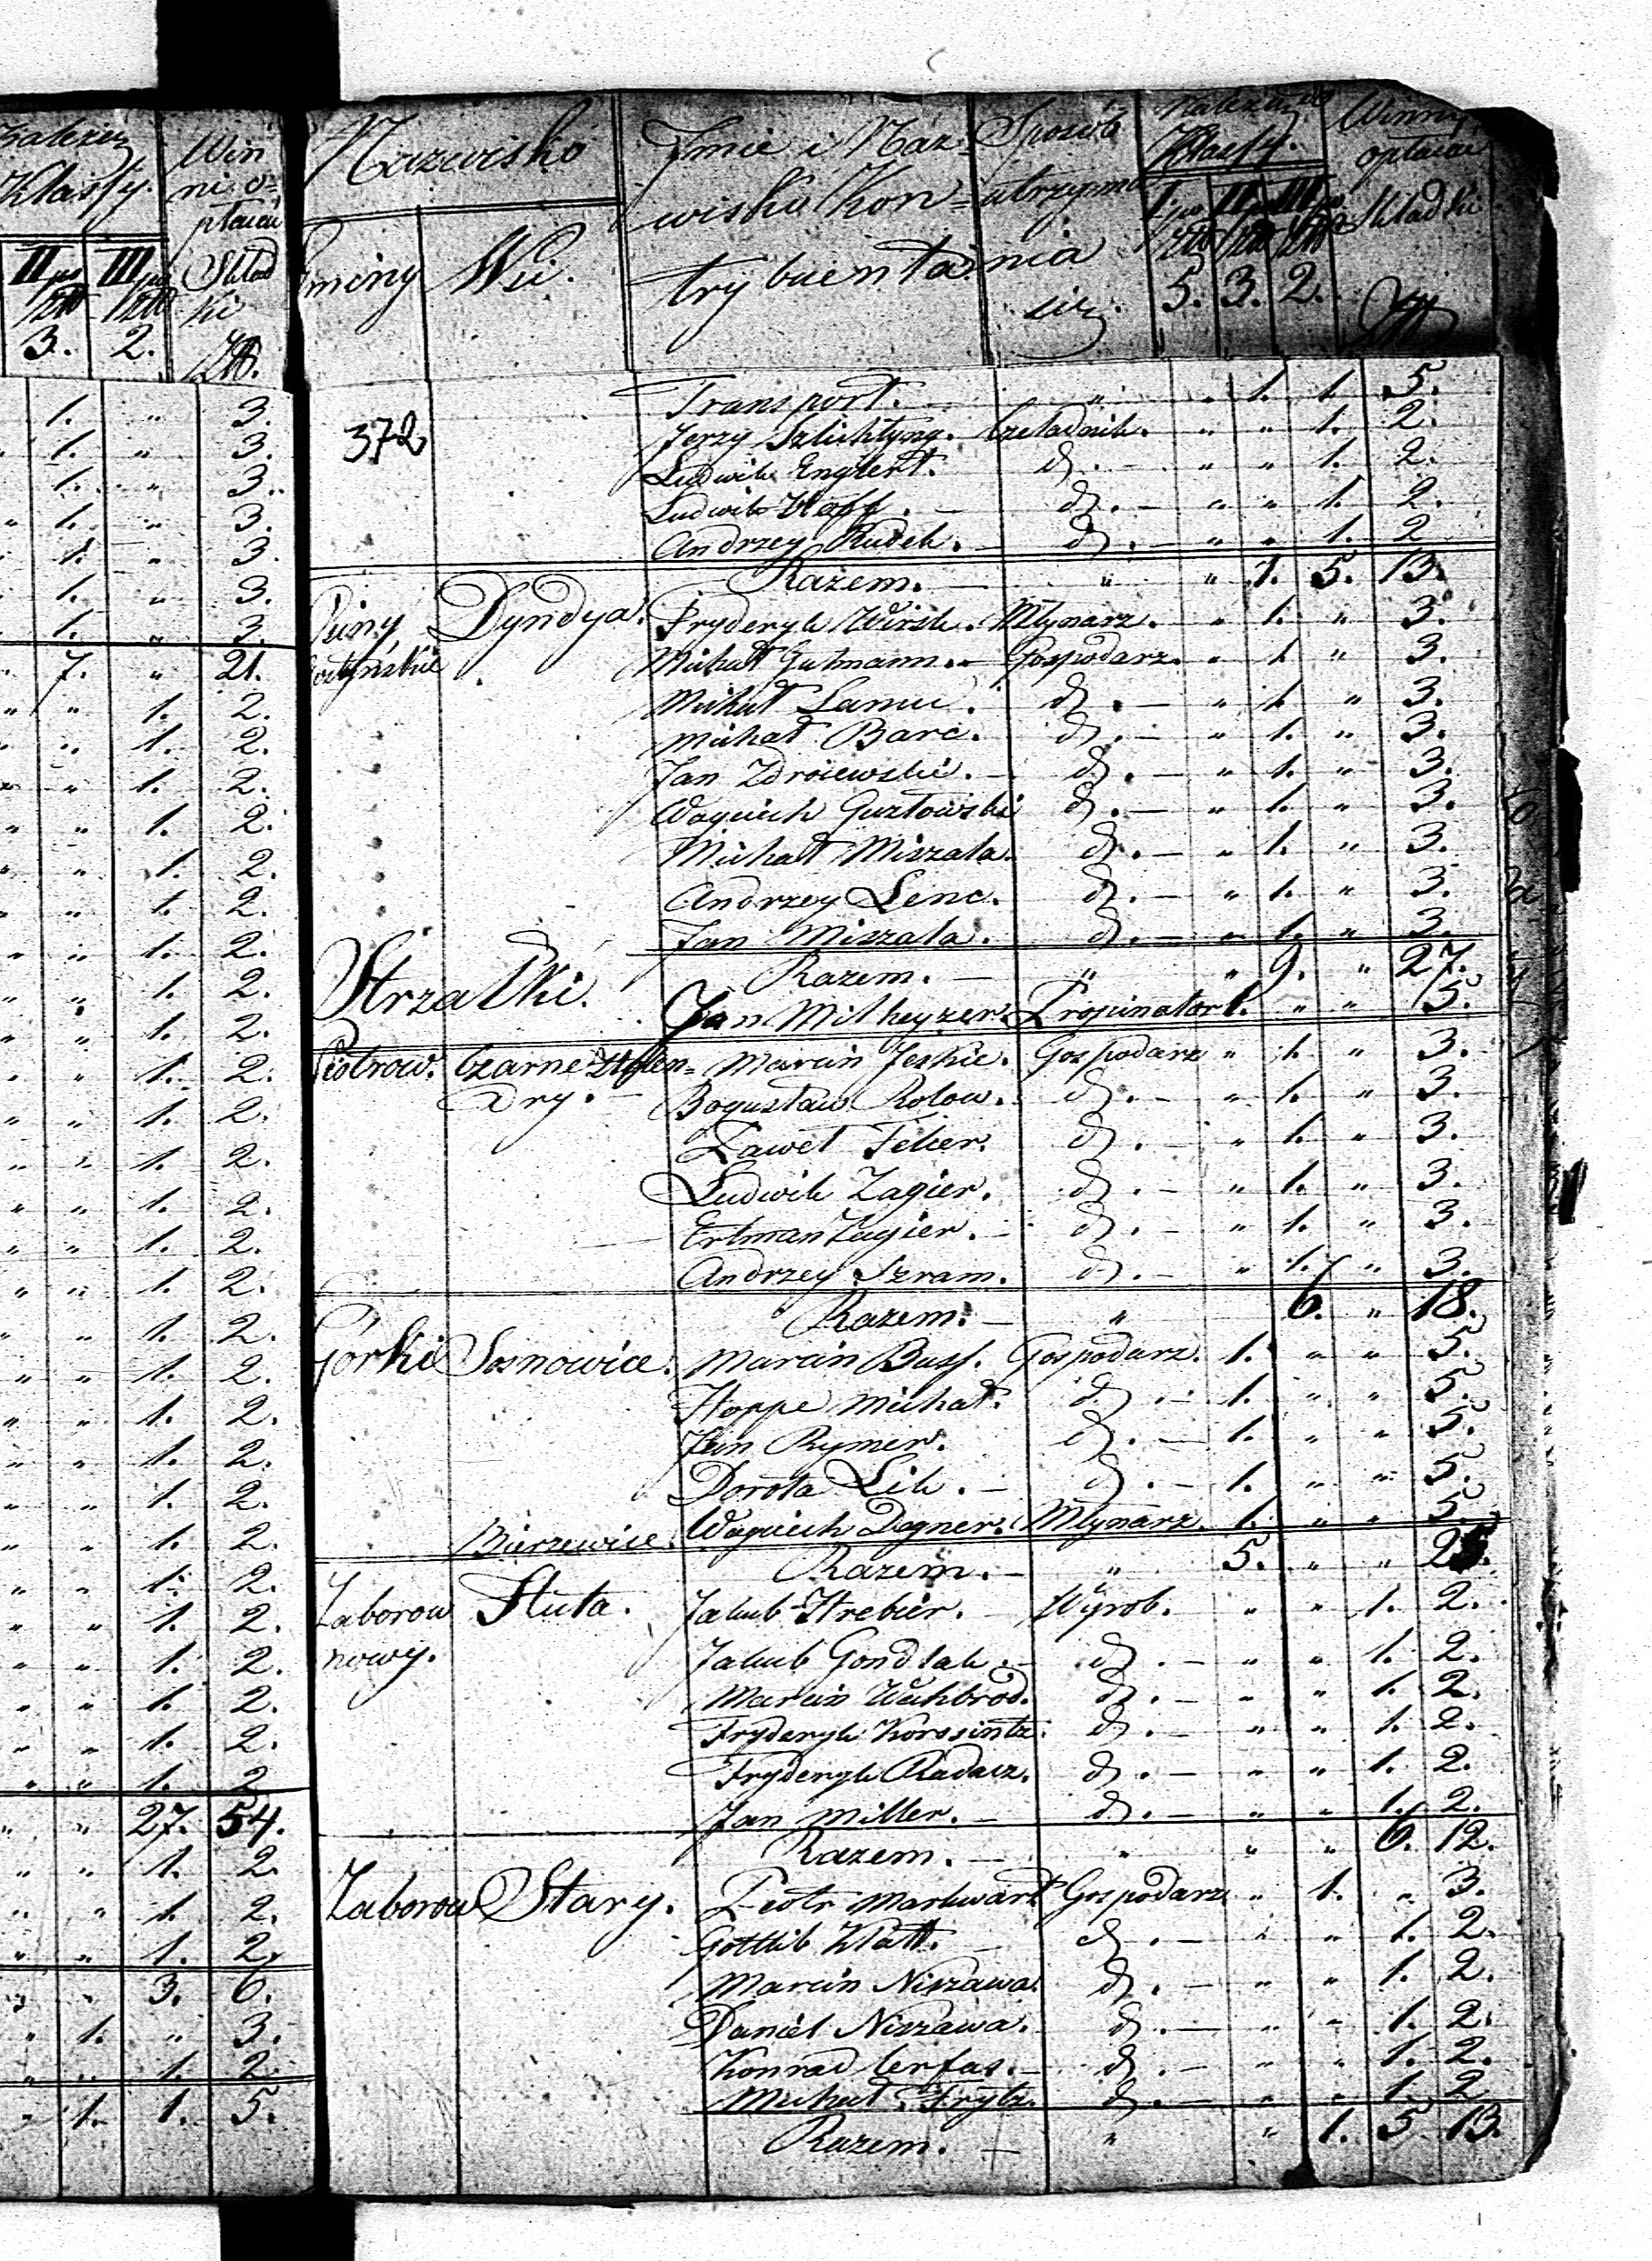 Klassy.
Win
ni o=
płacać
Skład
ki
II po III po
złt złt
3. 2. Złt.
1. " 3.
1. " 3.
1. " 3.
1. " 3.
1. " 3.
1. " 3.
1. " 3.
7. " 21.
" " 1. 2.
" " 1. 2.
" " 1. 2.
" " 1. 2.
" " 1. 2.
" " 1. 2.
" " 1. 2.
" " 1. 2.
" " 1. 2.
" " 1. 2.
" " 1. 2.
" " 1. 2.
" " 1. 2.
" " 1. 2.
" " 1. 2.
" " 1. 2.
" " 1. 2.
" " 1. 2.
" " 1. 2.
" " 1. 2.
" " 1. 2.
" " 1. 2.
" " 1. 2.
" " 1. 2.
" " 1. 2.
" " 1. 2.
" " 1. 2
" " 27. 54.
" " 1. 2.
" " 1. 2.
" " 1. 2.
" " 3. 6.
" 1. " 3.
" " 1. 2.
" 1. 1. 5.
Nazwisko
Gminy Wsi.
Imie i Naz=
wisko Kon=
trybuenta
Sposób
utrzyma
nia
się.
Należy do
Klassy.
I po II po III po
złt złt złt
5. 3. 2.
Winny
opłacać
Składki
Złt
Transport. " " 1. 1. 5.
372 Jerzy Szlichtyng. Czeladnik. " " 1. 2.
Ludwik Englert. d. " " 1. 2.
Ludwik Haff. d. " " 1. 2.
Andrzey Rudek. d. " " 1. 2
Razem. " " 1. 5. 13.
Dyndya. Fryderyk Wirsk. Młynarz. " 1. " 3.
Michał Gutmann. Gospodarz. " 1. " 3.
Michał Lamu. d. " 1. " 3.
Michał Barc. d. " 1. " 3.
Jan Zdroiewski. d. " 1. " 3.
Woyciech Guzłowski d. " 1. " 3.
Michał Miszala. d. " 1. " 3.
Andrzey Lenc. d. " 1. " 3.
Jan Miszala. d. " 1. " 3.
Razem. " " 9. " 27.
Strzałki. Jan Milheyzer. Propinator 1. " " 5.
Piotrow. Czarne Hollen= Marcin Jeskie. Gospodarz " 1. " 3.
dry. Bogusław Rolow. d. " 1. " 3.
Paweł Felier. d. " 1. " 3.
Ludwik Zagier. d. " 1. " 3.
Ertman Zagier. d. " 1. " 3.
Andrzey Szram. d. " 1. " 3.
Razem. " 6. " 18.
Górki Sosnowice. Marcin Bass. Gospodarz. 1. " " 5.
Hoppe Michał. d. 1. " " 5.
Jan Rymer. d. 1. " " 5.
Dorota Lik. d. 1. " " 5.
Bierzewice. Woyciech Degner. Młynarz. 1. " " 5.
Razem. " 5. " " 25.
Zaborow Huta. Jakub Strebier. Wyrob. " " 1. 2.
nowy. Jakub Gondlak. d. " " 1. 2.
Marcin Wahbrod. d. " " 1. 2.
Fryderyk Korosintz. d. " " 1. 2.
Fryderyk Radacz. d. " " 1. 2.
Jan Miller. d. " " 1. 2.
Razem. " " " 6. 12.
Zaborow Stary. Piotr Markwart Gospodarz " 1. " 3.
Gottlib Klatt. d. " " 1. 2.
Marcin Niszawa. d. " " 1. 2.
Daniel Niszawa. d. " " 1. 2.
Konrad Cerfas. d. " " 1. 2.
Michał Frytz. d. " " 1. 2
Razem. " " 1. 5 13.